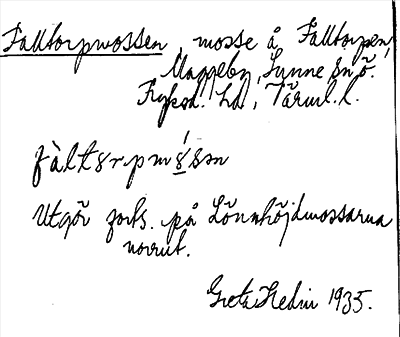 Falltorpmossen, mosse å Falltorpen,
Maggeby, Sunne sn Ö.
Fryksd. hd, Värml. l.
fàltɤrpmɤ́sən
Utgör forts. på Lönnhöjdmossarna
norrut.
Greta Hedin 1935.